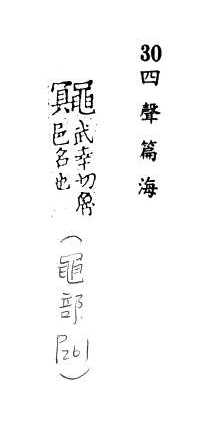 30四聲篇海
鼆
武幸切魯
邑名也
(黽部 P261)